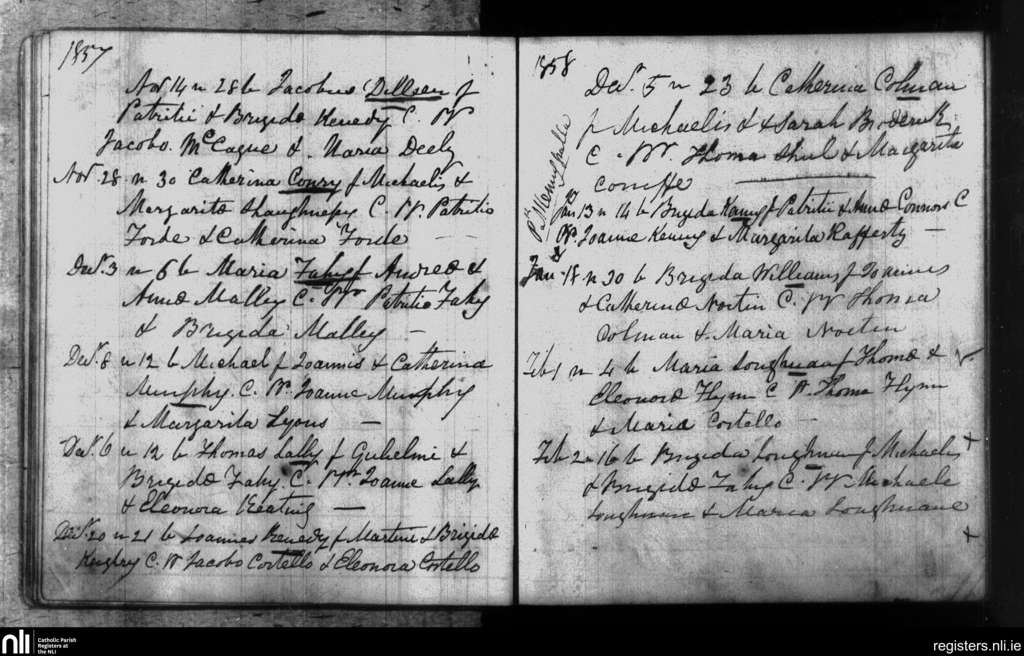 1857
Nov. 14 n 28 b Jacobus Dillean f
Patritii & Brigidæ Kenedy C. Pr
Jacobo. McCague & Maria Deely
Nov. 28 n 30 Catherina Conry f Michaelis &
Margaritæ Shaughnessy C. Pr Patritio
Forde & Catherina Forde
Decr. 3 n 6 b Maria Fahy f Andreæ &
Annæ Malley C. Pr Patritio Fahy
& Brigida Malley —
Decr. 8 n 12 b Michael f Joannis & Catherina
Murphy C. Pr. Joanne Murphy
& Margarita Lyons —
Decr. 6 n 12 b Thomas Lally f Gulielmi &
Brigidæ Fahy C. Pr Joanne Lally
& Eleonora Keating —
Decr. 20 n 21 b Joannes Kenedy f Martini & Brigidæ
C. Pr Jacobo Costello & Eleonora Costello
1858
Decr. 5 n 23 b Catherina Colman
f Michaelis & Sarah Broderick
C. Pr. Thoma & Margarita
Jan 13 n 14 b Brigida Kenny f Patritii & Annæ Connors C
Pr. Joanne Kenny & Margarita Rafferty —
Jan 18 n 30 b Brigida Williams f Joannis
& Catherinæ Noctin C. Pr Thoma
Colman & Maria Noctin
Feb 1 n 4 b Maria Loughnan f Thomæ &
Eleonoræ Flynn C Pr Thoma Flynn
& Maria Costello —
Feb 2 n 16 b Brigida Loughnan f Michaelis
& Brigidæ Fahy C. Pr Michaele
Loughnane & Maria Loughnane
nli
Catholic Parish
Registers at
the NLI
registers.nli.ie